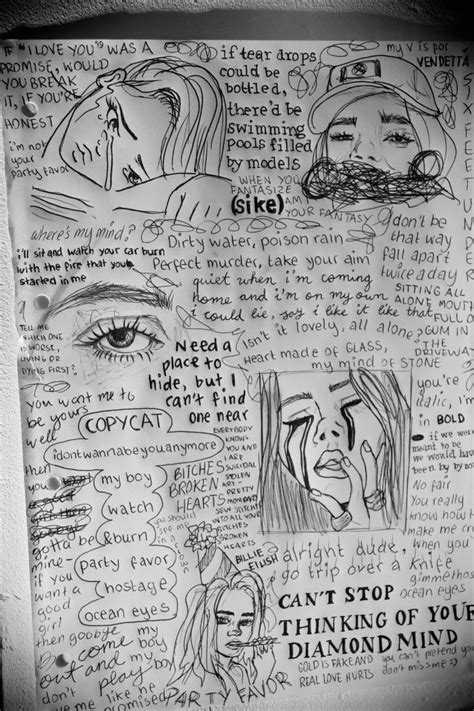 IF "I LOVE YOU" WAS A
PROMISE, WOULD
YOU BREAK
IT, IF YOU'RE
HONEST
i'm not
your
party favor
if tear drops
could be
bottled,
there'd be
swimming
pools filled
by models
my V is for
VENDETTA
WHEN YOU
FANTASIZE
(sike) AM I
YOUR FANTASY
where's my mind?
i'll sit and watch your car burn
with the fire that you
started in me
Dirty water, poison rain
Perfect murder, take your aim
don't be
that way
fall apart
twice a day
quiet when i'm coming
home and i'm on my own
i could lie, say i like it like that
SITTING ALL
ALONE
FULL OF
GUM IN
THE
DRIVEWAY
Isn't it lovely, all alone?
Heart made of GLASS,
my mind of STONE
TELL ME
WHICH ONE
IS WORSE,
LIVING OR
DYING FIRST?
Need a
place to
hide, but I
can't find
one near
you want me to
be yours
well
then
you
gotta be
mine
if you
want a
good
girl
then goodbye
COPYCAT
idontwannabeyouanymore
my boy
watch
&burn
party favor
hostage
ocean eyes
BITCHES
BROKEN
HEARTS
EVERYBODY
KNOWS
YOU AND
I ARE
SUICIDAL
STOLEN
ART
PRETTY
you should
see me
in a
crown
BILLIE
EILISH
you're
italic, i'm
in BOLD
if we were
meant to
be we
would have
been by
No fair
You really
know how to
make me
alright dude,
go trip over a knife
when you
gimme those
ocean eyes
CAN'T STOP
THINKING OF YOUR
DIAMOND MIND
GOLD IS FAKE AND
REAL LOVE HURTS
you can't pretend you
don't miss me :)
come my
out and
play
my boy
don't
like he
promised
PARTY FAVOR